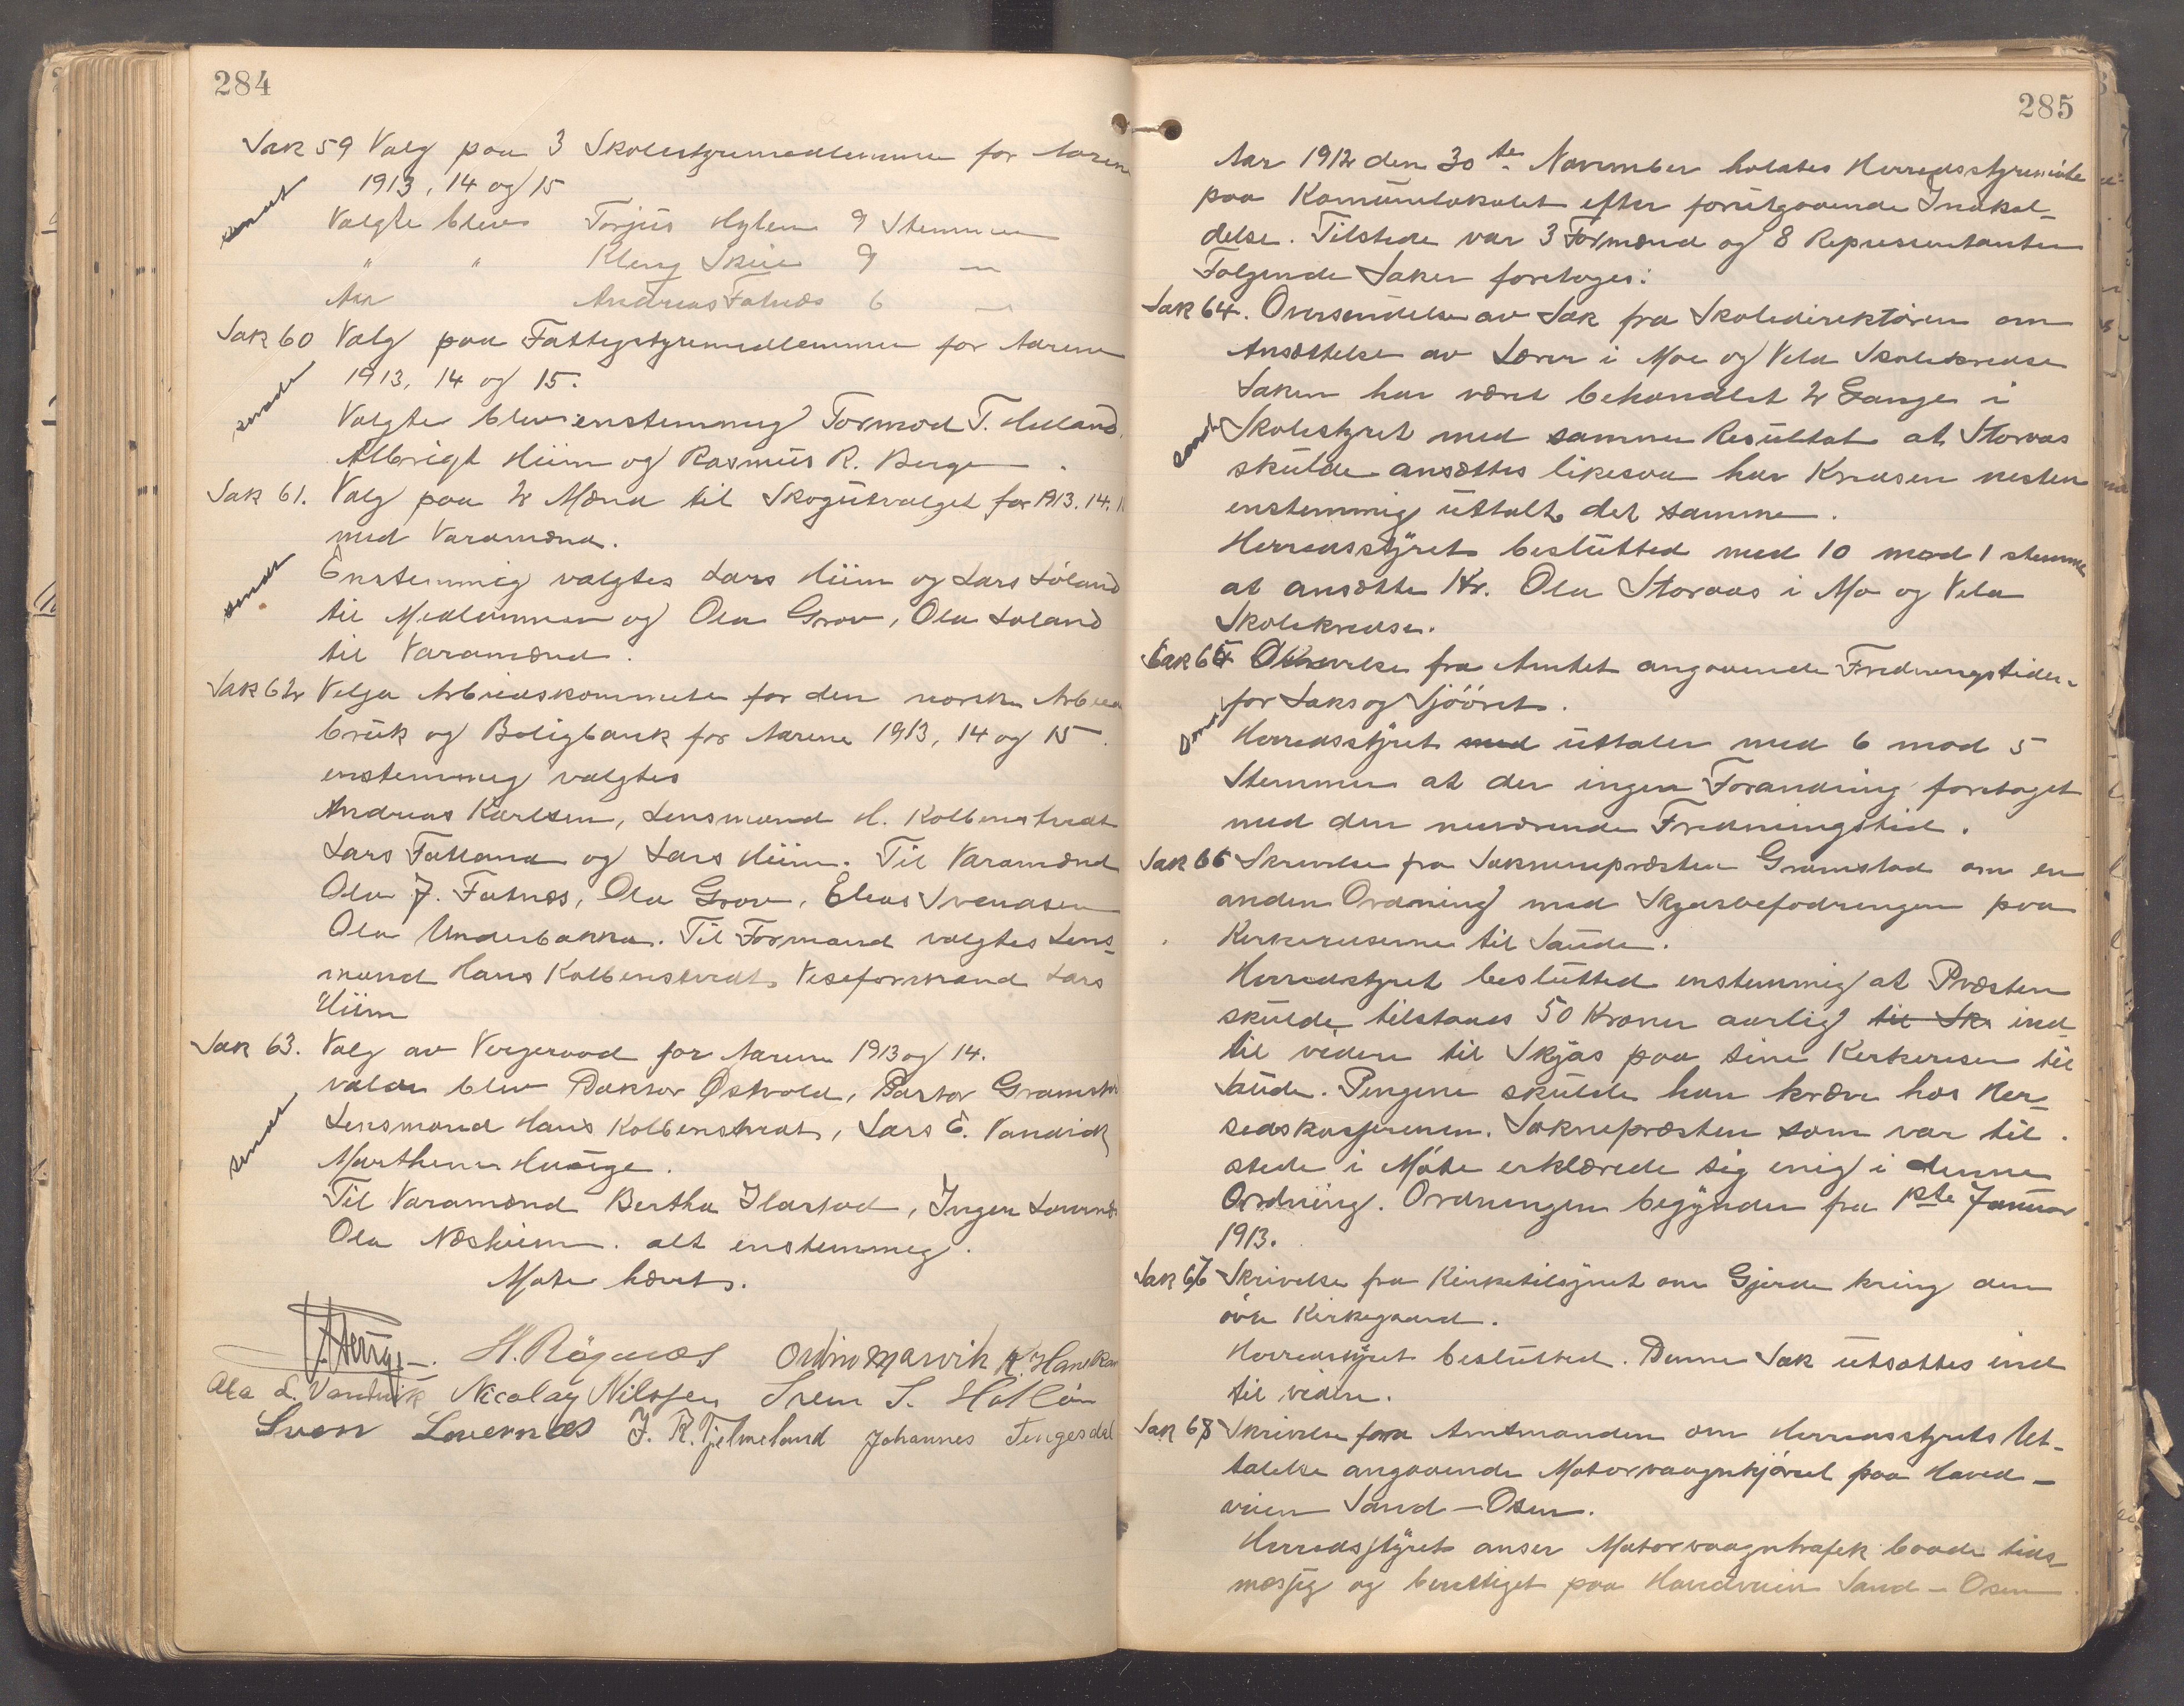 284
Sak 59 Valg paa 3 Skolestyremedlemmer for Aarene
1913, 14 og 15
sendt
Valgte blev Torjus Hylen 9 Stemmer
" " Kleng Skeie 9 —
" Andreas Fatnæs 6 —
Sak 60 Valg paa Fattigstyremedlemmer for Aarene
1913, 14 og 15.
sendt
Valgte blev enstemmig Tormod T. Helland,
Albrigt Hiim og Rasmus R. Berge.
Sak 61. Valg paa 2 Mænd til Skogutvalget for 1913. 14. 1
med Varamænd.
sendt
Enstemmig valgtes Lars Hiim og Lars Løland
til Medlemmer og Ola Grov, Ola Løland
til Varamænd.
Sak 62 Velja Arbeidskommite for den norske Arbeider
bruk og Boligbank for Aarene 1913, 14 og 15.
enstemmig valgtes
Andreas Karlsen, Lensmand H. Kolbenstvedt
Lars Fatland og Lars Hiim. Til Varamænd
Ola J. Fatnæs, Ola Grov, Elias Svendsen
Ola Underbakka. Til Formand valgtes Lens-
mand Hans Kolbenstvedt, Viseformand Lars
Hiim
Sak 63. Valg av Vergeraad for Aarene 1913 og 14.
sendt
valde blev Doktor Østvold, Pastor Gramstad
Lensmand Hans Kolbenstvedt, Lars E. Vandvik
Marthene Hauge.
Til Varamænd Bertha Ilastad, Inger Lovernæs
Ola Næsheim. alt enstemmig.
Møte hævet.
H. Røgnæs Ordin Marvik K. Hanekam
Ola L. Vandvik Nicolay Nilssen Sven S. Hatløy
Sven Lovernæs J. R. Tjelmeland Johannes Tengesdal
285
Aar 1912 den 30te November holdtes Herredsstyremøte
paa Komunelokalet efter forutgaaende Indkal-
delse. Tilstede var 3 Formænd og 8 Representanter
Følgende Saker foretoges:
Sak 64. Oversendelse av Sak fra Skoledirektøren om
Ansættelse av Lærer i Moe og Vela Skolekredse
Saken har været behandlet 2 Gange i
sendt
Skolestyret med samme Resultat at Storaas
skulde ansættes likesaa har Kredsen nesten
enstemmig uttalt det samme.
Herredsstyret beslutted med 10 mod 1 stemme
at ansætte Hr. Ola Storaas i Mo og Vela
Skolekredse.
Sak 65 Skrivelse fra Amtet angaaende Fredningstiden
for Laks og Sjøøret.
sendt
Herredsstyret med uttaler med 6 mod 5
Stemmer at der ingen Forandring foretaget
med den nuværende Fredningstid.
Sak 66 Skrivelse fra Soknepræsten Gramstad om en
anden Ordning med Skydsbefodringen paa
Kirkereiserne til Saude.
Herredstyret beslutted enstemmig at Præsten
skulde tilstaaes 50 Kroner aarlig til Sk ind
til videre til Skjds paa sine Kirkereiser til
Saude. Pengene skulde han kræve hos Her-
redskasjereren. Soknepræsten som var til-
stede i Møte erklærede sig enig i denne
Ordning. Ordningen begynder fra 1ste Januar
1913.
Sak 67 Skrivelse fra Kirketilsynet om Gjerde kring den
øvre Kirkegaard.
Herredstyret beslutted. Denne Sak utsættes ind
til videre.
Sak 68 Skrivelse fra Amtmanden om Herredsstyrets Ut-
talelse angaaende Motorvaagnkjørsel paa Hoved-
veien Sand — Osen.
Herredsstyret anser Motorvaagntrafik baade tids-
mæssig og berettiget paa Hovedveien Sand — Osen